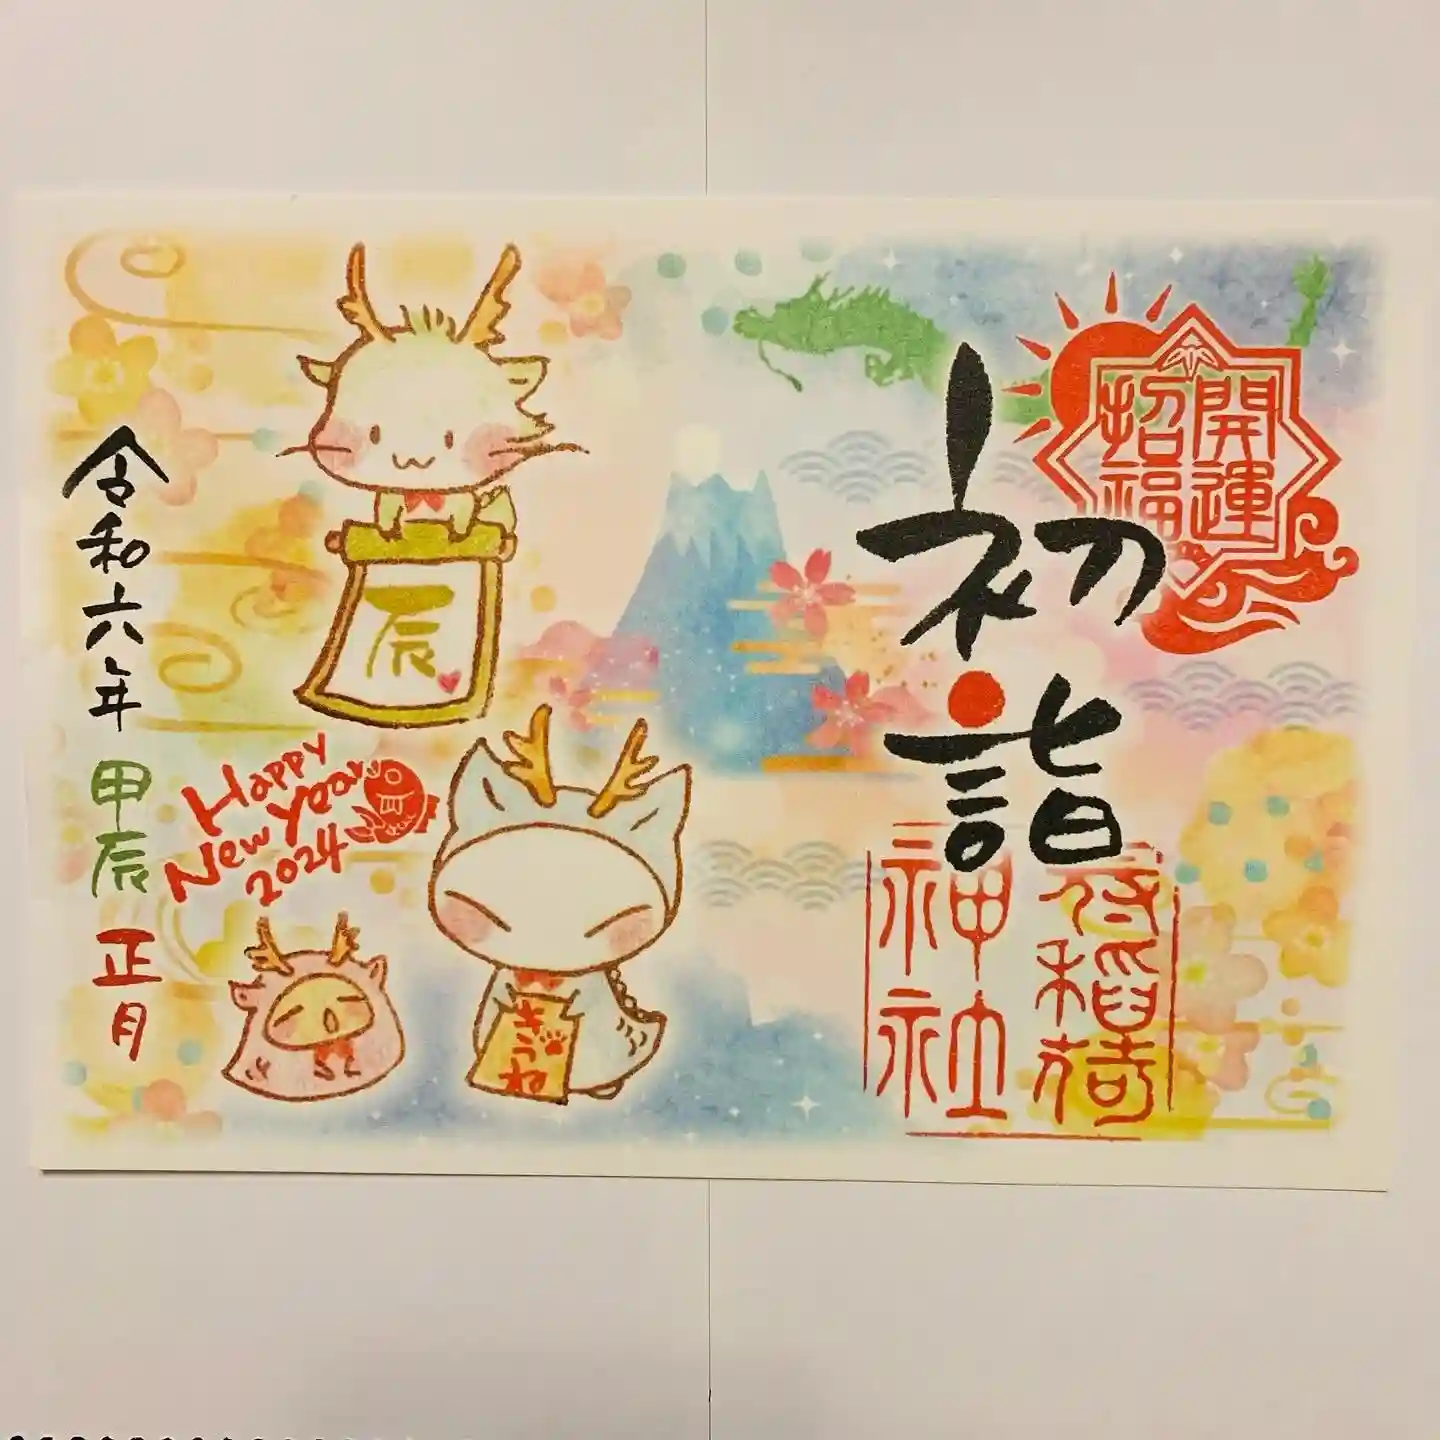 開運
招福
初詣
稲荷
神社
辰
Happy
New Year
2024
きつね
令和六年 甲辰 正月